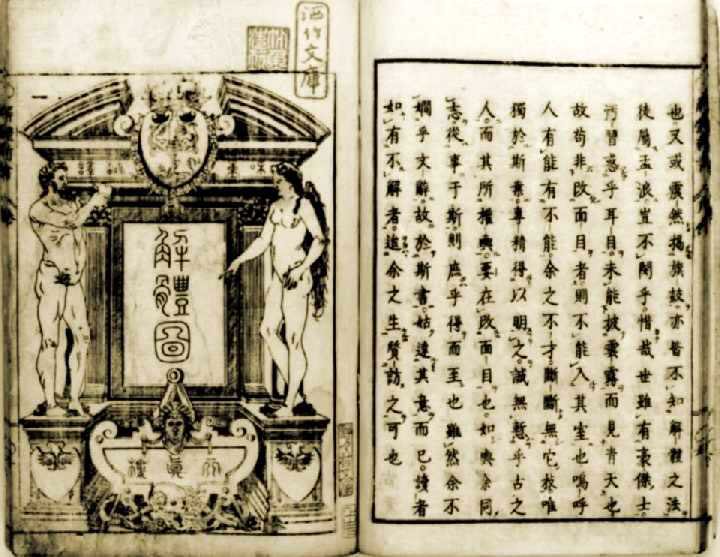 也又或褒然揭旗鼓亦皆不知解體之法
徒屬孟浪豈不乎惜哉世雖有豪傑士
汚習惑乎耳目未能披雲霧而見青天也
故苟非改面目者則不能入其室也嗚呼
人有能有不能余之不才斷斷無它技唯
獨於斯業專精得以明之誠無慙乎古之
人而其所權輿要在改面目也如與余同
志從事于斯則庶乎得而至也雖然余不
嫺乎文辭故於斯書姑達其意而已讀者
如有不解者進余之生質訪之可也
酒竹文庫
解體圖